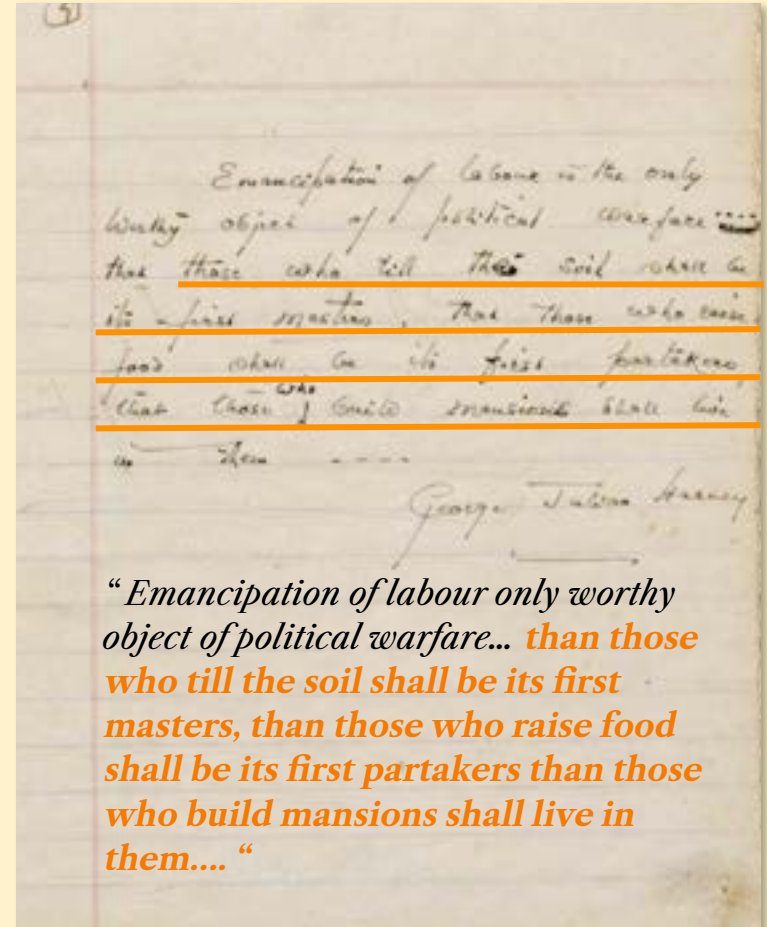 Emancipation of labour is the only
worthy object of political warfare ....
that those who till the soil shall be
its first masters, that those who raise
food shall be its first partakers,
that those who build mansions shall live
in them ----
George Julian Harney
“ Emancipation of labour only worthy
object of political warfare... than those
who till the soil shall be its first
masters, than those who raise food
shall be its first partakers than those
who build mansions shall live in
them.... “